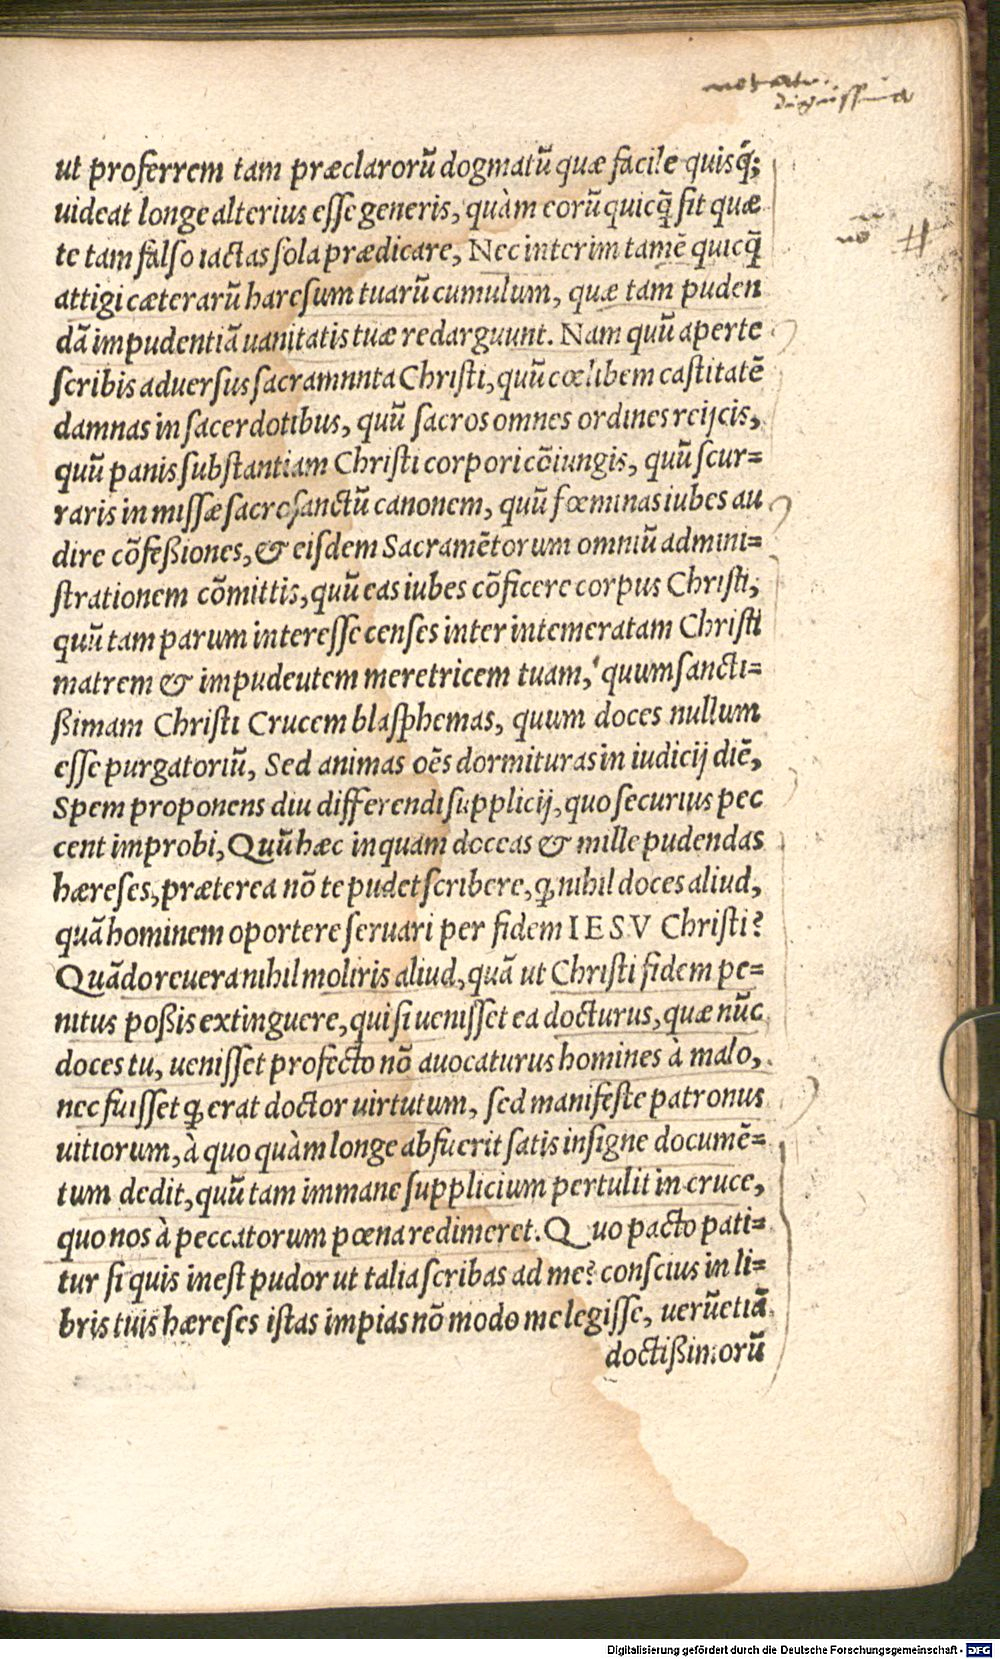 notatu
dignissima
ut proferrem tam præclarorũ dogmatũ quæ facile quisq́;
uideat longe alterius esse generis, quàm eorũ quicq̃ sit quæ
te tam falso iactas sola prædicare, Nec interim tamẽ quicq̃
attigi cæterarũ haresum tuarũ cumulum, quæ tam puden
dã impudentiã uanitatis tuæ redarguunt. Nam quũ aperte
scribis aduersus sacramnnta Christi, quũ cœlibem castitatẽ
damnas in sacerdotibus, quũ sacros omnes ordines reijcis,
quũ panis substantiam Christi corpori cõiungis, quũ scur=
raris in missæ sacrosanctũ canonem, quũ fœminas iubes au
dire cõfeßiones, & eisdem Sacramẽtorum omniũ admini=
strationem cõmittis, quũ eas iubes cõficere corpus Christi,
quũ tam parum interesse censes inter intemeratam Christi
matrem & impudeutem meretricem tuam, quum sancti=
ßimam Christi Crucem blasphemas, quum doces nullum
esse purgatoriũ, Sed animas oẽs dormituras in iudicij diẽ,
Spem proponens diu differendi supplicij, quo securius pec
cent improbi, Quũ hæc inquam doceas & mille pudendas
hæreses, præterea nõ te pudet scribere, ꝙ nihil doces aliud,
quã hominem oportere seruari per fidem IESV Christi?
Quãdo reuera nihil moliris aliud, quã ut Christi fidem pe=
nitus poßis extinguere, qui si uenisset ea docturus, quæ nũc
doces tu, uenisset profecto nõ auocaturus homines à malo,
nec fuisset ꝙ erat doctor uirtutum, sed manifeste patronus
uitiorum, à quo quàm longe abfuerit satis insigne documẽ=
tum dedit, quũ tam immane supplicium pertulit in cruce,
quo nos à peccatorum pœna redimeret. Quo pacto pati=
tur si quis inest pudor ut talia scribas ad me? conscius in li=
bris tuis hæreses istas impias nõ modo me legisse, uerũetiã
doctißimorũ
Digitalisierung gefördert durch die Deutsche Forschungsgemeinschaft - DFG